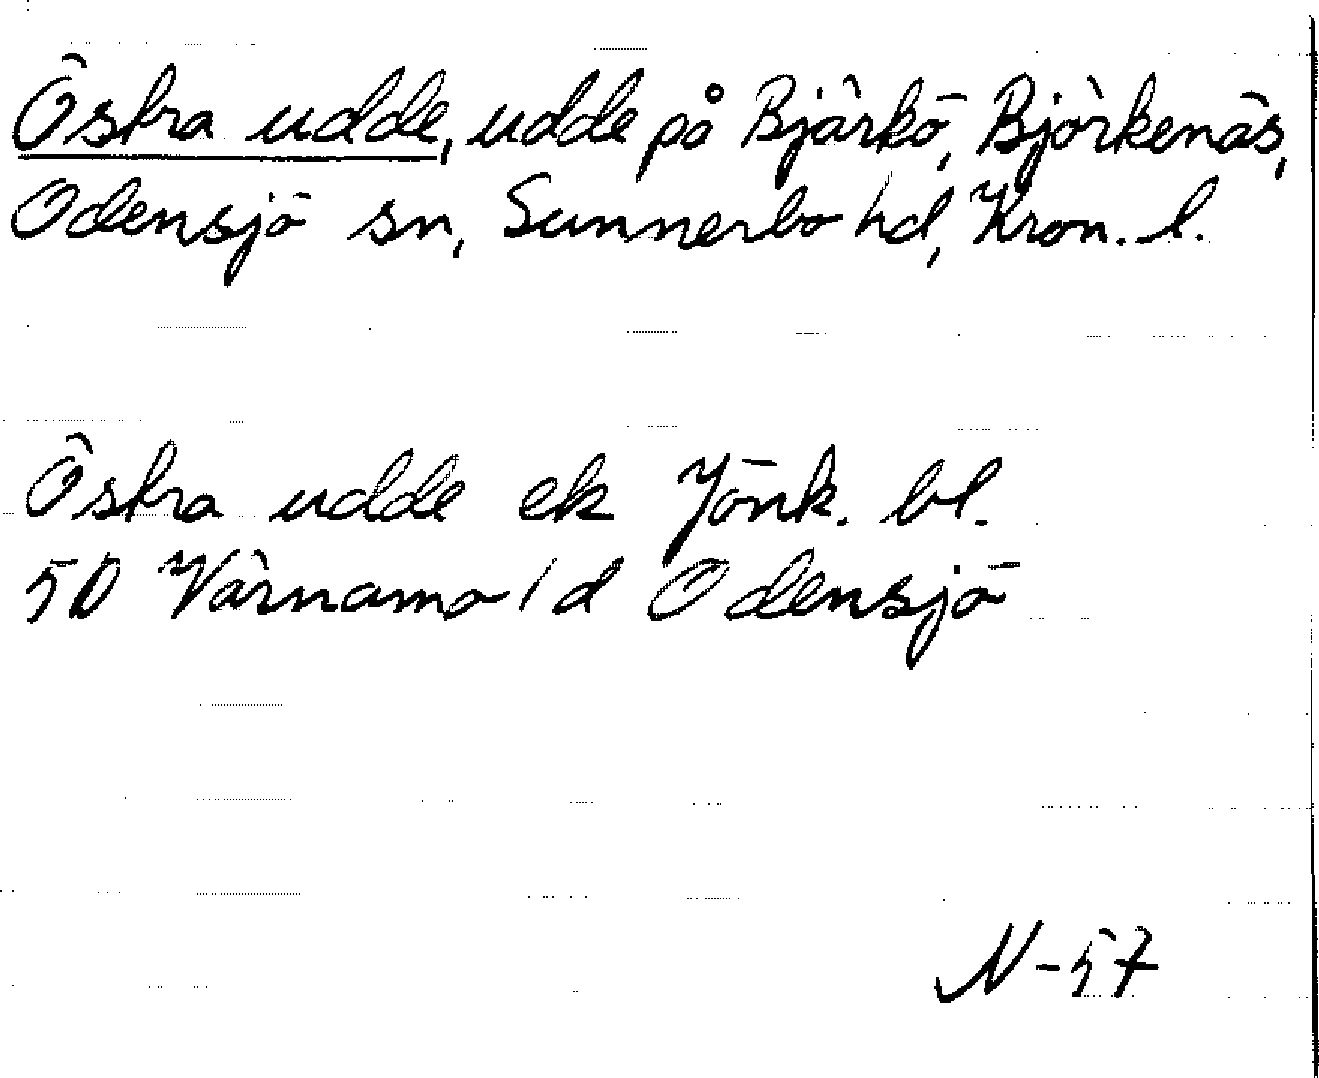 Östra udde, udde på Bjärkö, Björkenäs,
Odensjö sn, Sunnerbo hd, Kron. l.
Östra udde ek Jönk. bl.
5D Värnamo / d Odensjö
N-57